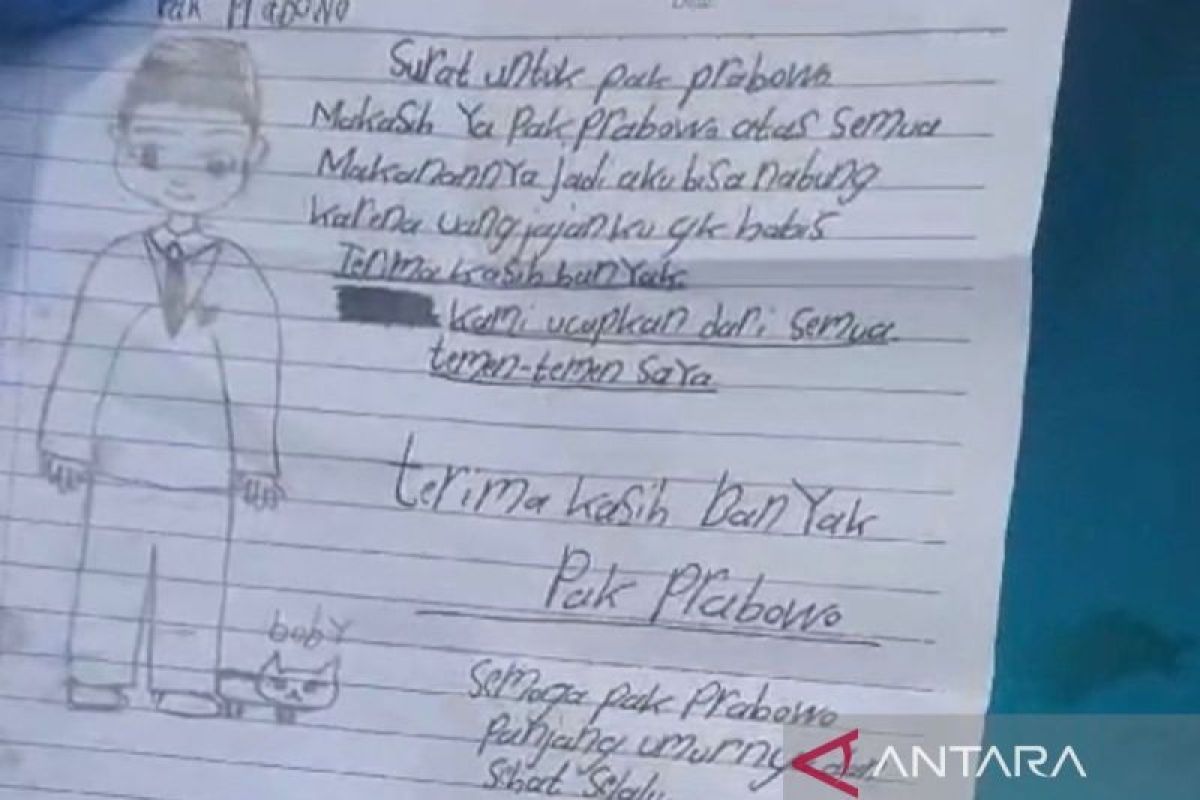 Pak Prabowo
Surat untuk pak prabowo
Makasih Ya Pak Prabowo atas semua
Makanannya jadi aku bisa nabung
karena uang jajanku gk habis
Terima kasih banyak
kami ucapkan dari semua
temen-temen saya
terima kasih banyak
Pak Prabowo
bobY
semoga pak Prabowo
Panjang umurnya
Sehat Selalu
ANTARA